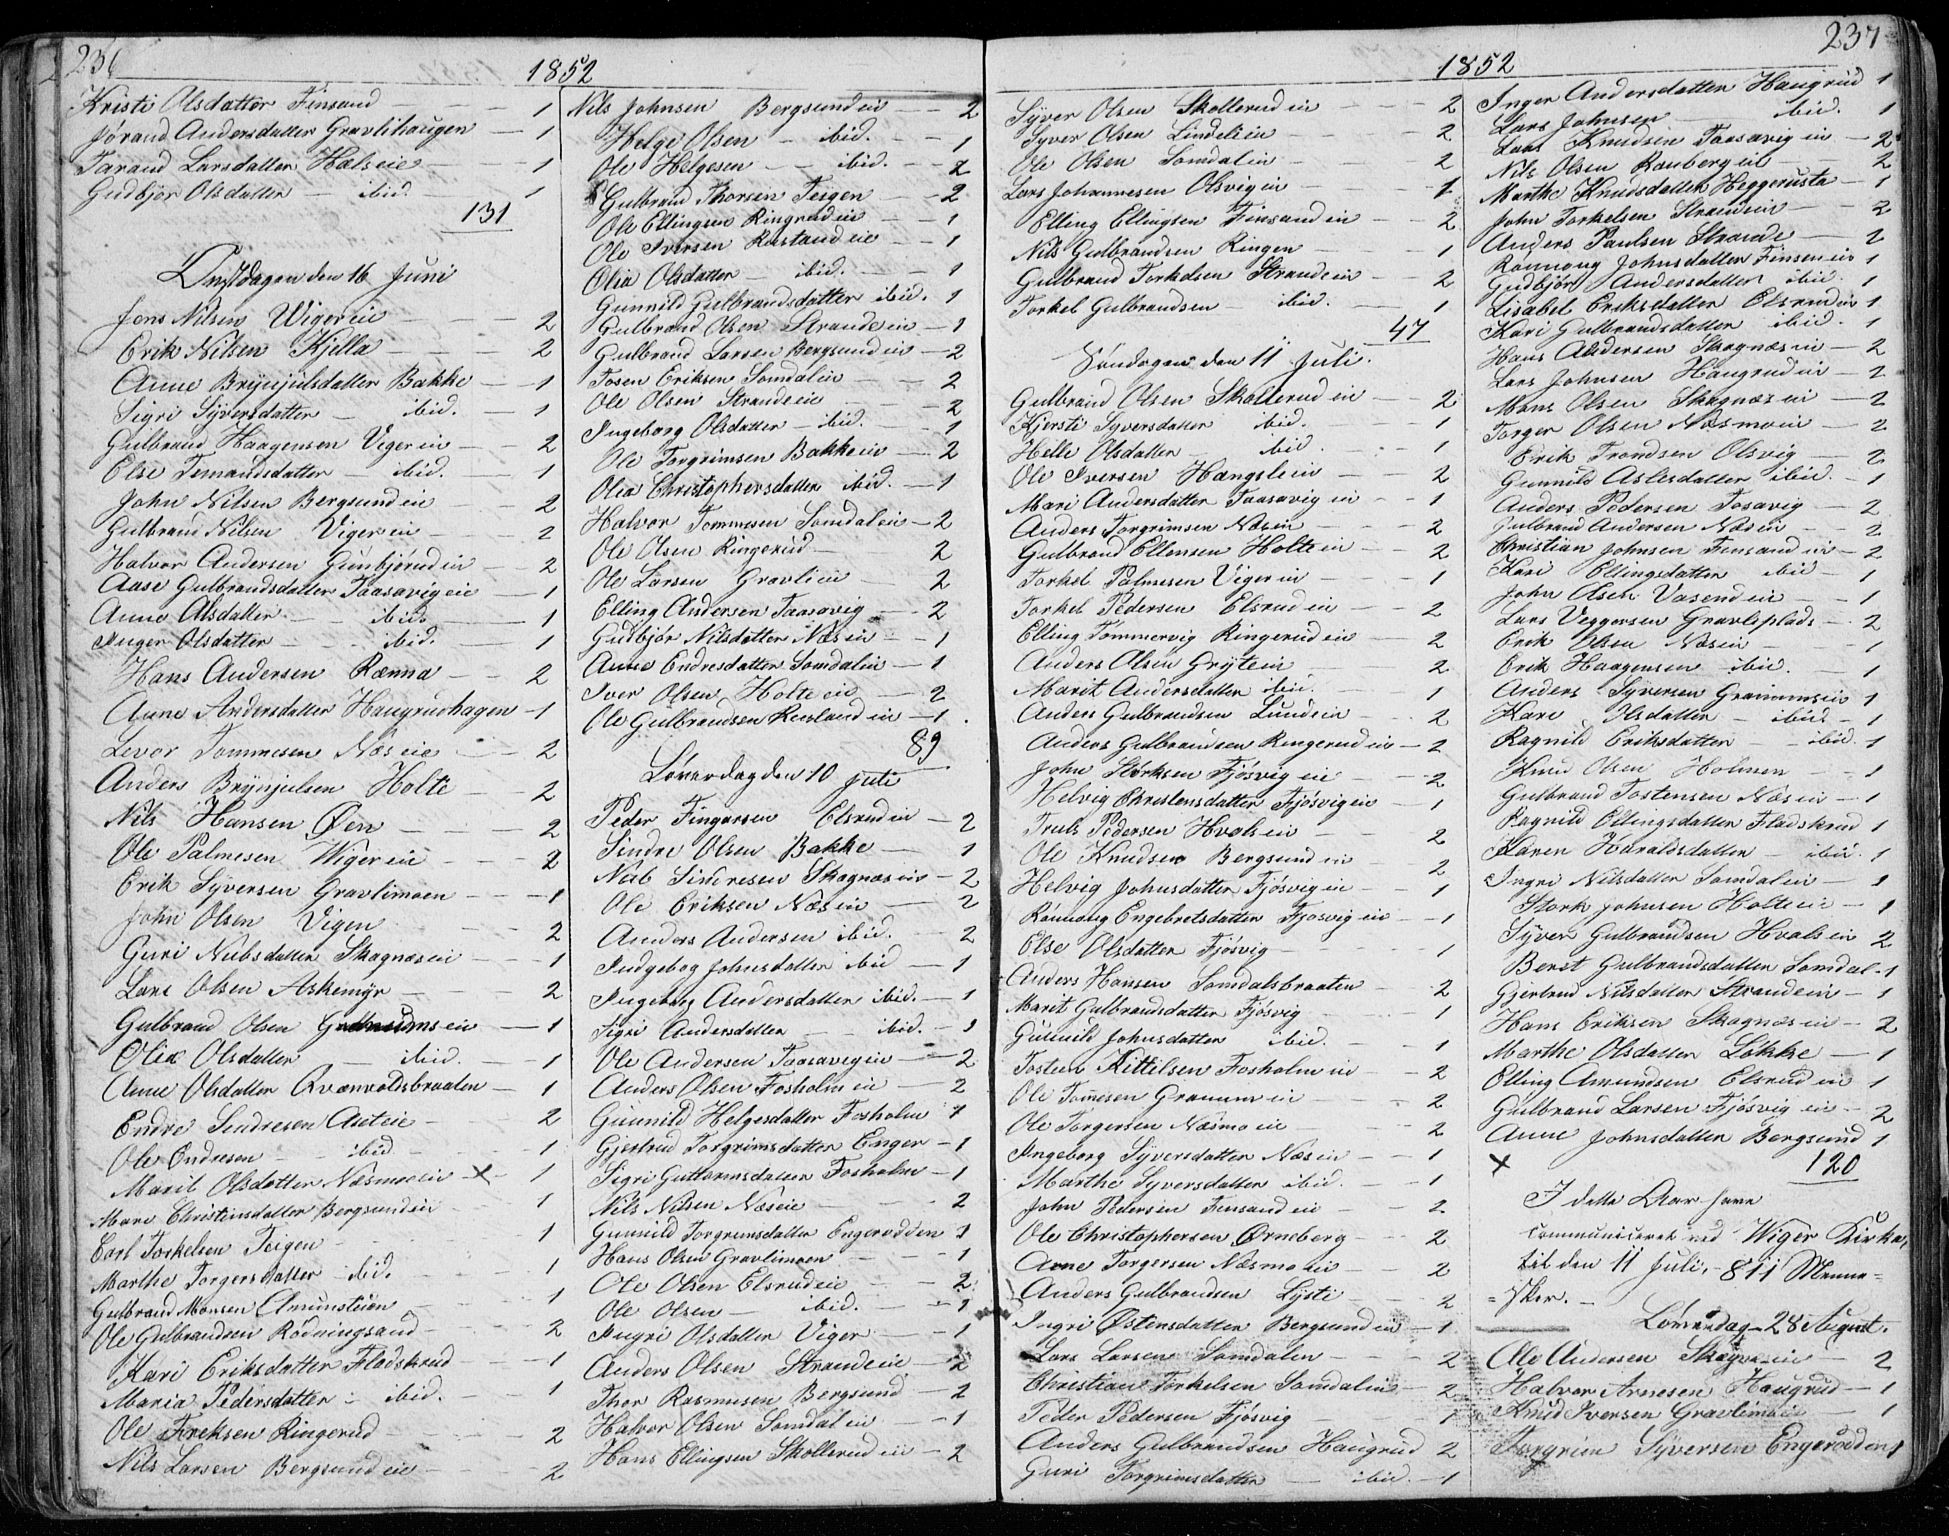 236
1852
Kristi Olsdatter Finsand — 1
Jørand Andersdatter Gravlihaugen — 1
Tarand Larsdatter Hælseie — 1
Gudbjør Olsdatter ibid — 1
131
Onsdagen den 16 Juni
Jens Nilsen Wigereie — 2
Erik Nilsen Kjella — 2
Anne Brynjulsdatter Bakke — 1
Sigri Syversdatter — ibid. — 1
Gulbrand Haagensen Vigereie — 2
Else Temandsdatter — ibid. 1
John Nilsen Bergsundeie 2
Gulbrand Nilsen Vigereie 2
Halvor Andersen Gunbjørudeie — 2
Aase Gulbrandsdatter Taasavigeie — 1
Anne Olsdatter — ibid. — 1
Inger Olsdatter — ibid. 1
Hans Andersen Rænna — 2
Anne Andersdatter Haugrudhagen — 1
Levor Tommesen Næseie — 2
Anders Brynjulsen Holte — 2
Nils Hansen Øen — 2
Ole Palmesen Wigereie — 2
Erik Syversen Gravlimoen — 1
John Olsen Vigen 2
Guri Nubsdatter Skagnæseie — 1
Lars Olsen Askemyr — 2
Gulbrand Olsen — 1
Olia Olsdatter — ibid. — 1
Anne Olsdatter Qvænvoldsbraaten — 1
Endre Sindresen 2
Ole Endresen — ibid — 1
Marit Olsdatter Næsmoeie — x — 1
Mari Christensdatter Bergsundeie — 1
Carl Torkelsen Teigen — 1
Marthe Torgersdatter — ibid. 1
Gulbrand Monsen — 1
Ole Gulbrandsen Rødningsand — 2
Kari Eriksdatter Fladskrud — 1
Maria Pedersdatter — ibid. — 1
Ole Fredriksen Ringerud 2
Nils Larsen Bergsundeie — 2
Nils Johnsen Bergsundeie — 2
Helge Olsen — ibid. — 1
Ole Helgesen — ibid. — 2
Gulbrand Thorsen Teigen — 2
Ole Ellingsen Ringerudeie — 1
Ole Iversen Rustandeie — 1
Olia Olsdatter — ibid. — 1
Gunnild Gulbrandsdatter ibid. 1
Gulbrand Olsen Strandeeie — 1
Gulbrand Larsen Bergsundeie — 2
Tosten Eriksen Somdaleie — 2
Ole Olsen Strandeeie — 2
Ingeborg Olsdatter — ibid. — 1
Ole Torgrimsen Bakkeeie — 2
Olia Christophersdatter ibid. — 1
Halvor Tommesen Somdaleie — 2
Ole Olsen Ringerud — 2
Ole Larsen Gravlieie — 2
Elling Andersen Taasavig — 2
Gudbjør Nilsdatter Næseie — 1
Anne Endresdatter Somdaleie — 1
Iver Olsen Holteeie — 2
Ole Gulbrandsen Rustandeie — 1
89
Løverdag den 10 Juli
Peder Fingarsen Elsrudeie — 2
Sindre Olsen Bakke — 1
Nub Sindresen Skagnæseie — 2
Ole Eriksen Næseie — 2
Anders Andersen ibid. — 2
Indgebog Johnsdatter ibid — 1
Ingeborg Andersdatter ibid. — 1
Sigri Andersdatter ibid. — 1
Ole Andersen Taasavigeie — 2
Anders Olsen Fosholmeie 2
Gunnild Helgesdatter Fosholm 1
Gjertrud Torgrimsdatter Enger — 1
Sigri Guttormsdatter Fosholm — 1
Nils Nilsen Næseie — 2
Gunnild Torgrimsdatter Engerødden 1
Hans Olsen Gravlimoen — 1
Ole Olsen Elsrudeie — 2
Ole Olsen — ibid. — 1
Ingri Olsdatter Viger — 1
Anders Olsen Strandeeie — 2
Thor Rasmusen Bergsund — 2
Halvor Olsen Somdaleie — 1
Hans Ellingsen Skollerudeie — 2
237
1852
Syver Olsen Skollerudeie — 2
Syver Olsen Lindelieie — 2
Ole Olsen Somdaleie — 2
Lars Johannesen Olsvigeie — 1
Elling Ellingsen Finsandeie — 2
Nils Gulbrandsen Ringen — 1
Gulbrand Torkelsen Strandeeie — 2
Torkel Gulbrandsen — ibid. — 1
47
Søndagen den 11 Juli.
Gulbrand Olsen Skollerudeie — 2
Kjersti Syversdatter ibid. — 1
Helle Olsdatter ibid. — 1
Ole Iversen Hængsleeie — 2
Mari Andersdatter Taasavigeie — 1
Anders Torgrimsen Næseie — 2
Gulbrand Ellensen Holteeie — 2
Torkel Palmesen Vigereie — 1
Torkel Pedersen Elsrudeie 2
Elling Tømmervig Ringerudeie — 2
Anders Olsen Gryteeie 2
Marit Andersdatter ibid. — 1
Anders Gulbrandsen Lundeeie — 2
Anders Gulbrandsen Ringerudeie — 2
John Størksen Fjøsvigeie — 2
Helvig Christensdatter Fjøsvigeie — 1
Truls Pedersen Hvalseie — 2
Ole Knudsen Bergsundeie — 2
Helvig Johnsdatter Fjøsvigeie — 1
Rønnoug Engebretsdatter Fjøsvigeie — 1
Else Olsdatter Fjøsvig — 1
Anders Hansen Somdalsbraaten — 2
Marit Gulbrandsdatter Fjøsvig — 1
Gunnild Johnsdatter ibid. — 1
Tosten Kittilsen Fosholmeie — 2
Ole Tomesen Granumeie — 2
Ole Torgersen Næsmoeie — 2
Ingeborg Syversdatter Næseie — 1
Marthe Syversdatter ibid. — 1
John Pedersen Finsandeie — 2
Ole Christophersen Ørneberg — 2
Arne Torgersen Næsmoeie — 2
Anders Gulbrandsen Lyste — 2
Ingri Østensdatter Bergsundeie — 1
Lars Larsen Somdalen — 2
Christian Torkelsen Somdaleie — 2
Peder Pedersen Fjøsvig 1
Anders Gulbrandsen Haugrud 2
Guri Torgrimsdatter — ibid. — 1
Inger Andersdatter Haugrud 1
Lars Johnsen — ibid. 1
Lars Knudsen Taasavigeie — 2
Nils Olsen Raubergeie — 2
Marthe Knudsdatter Heggerusta — 1
John Torkelsen Strandeeie — 2
Anders Paulsen Strande — 2
Rønnoug Johnsdatter Finseneie 1
Gudbjør Andersdatter ibid. 1
Lisabet Eriksdatter Elsrudeie 1
Kari Gulbrandsdatter ibid. 1
Hans Andersen Skagnæseie — 2
Lars Johnsen Haugrudeie — 2
Mons Olsen Skagnæseie — 2
Torger Olsen Næsmoeie — 2
Erik Trondsen Olsvig — 2
Gunnild Aslesdatter ibid. — 1
Anders Pedersen Tosavig — 2
Gulbrand Andersen Næseie — 2
Christian Johnsen Finsandeie — 2
Kari Ellingsdatter ibid — 1
John Olsen Vasendeie — 1
Lars Veggersen Gravliplads — 2
Erik Olsen Næseie — 1
Erik Haagensen ibid. — 1
Anders Syversen Granumseie 1
Kari Olsdatter — ibid. — 1
Ragnild Eriksdatter — ibid. 1
Knud Olsen Holmen — 1
Gulbrand Tostensen Næseie — 1
Ragnild Ellingsdatter Fladskrud 1
Karen Haraldsdatter — ibid. 1
Ingri Nilsdatter Somdaleie — 1
Størk Johnsen Holteeie — 1
Syver Gulbrandsen Hvalseie 2
Berit Gulbrandsdatter Somdal — 1
Gjertrud Nilsdatter Strandeeie — 1
Hans Eriksen Skagnæseie — 2
Marthe Olsdatter Løkke — 1
Elling Amundsen Elsrudeie 1
Gulbrand Larsen Fjøsvigeie — 2
Anne Johnsdatter Bergsund 1
x 120
I dette Aar have
communiceret ved Wiger Kirke,
til den 11 Juli, — 811 Menne=
=sker. —
Løverdag 28 August.
Ole Andersen — 2
Halvor Arnesen Haugrud — 1
Knud Iversen Gravlimoeie — 1
Torgrim Syversen Engerødden 1